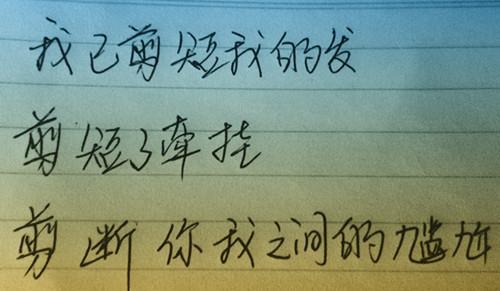 我已剪短我的发
剪短了牵挂
剪断你我之间的尴尬